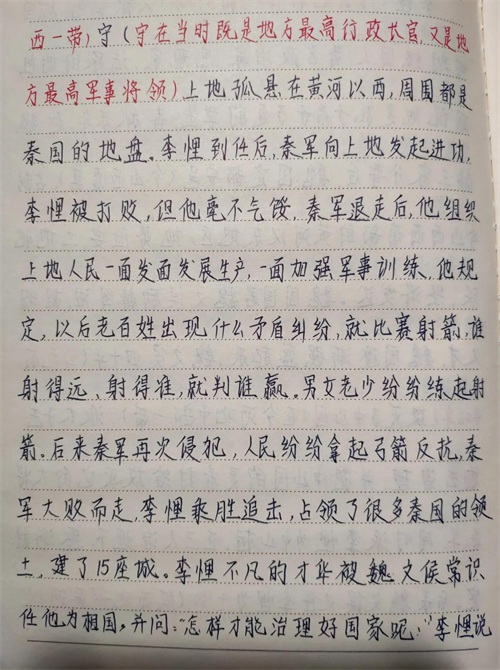 西一带）守（守在当时既是地方最高行政长官，又是地
方最高军事将领）上地孤悬在黄河以西，周围都是
秦国的地盘。李悝到任后，秦军向上地发起进功，
李悝被打败，但他毫不气馁，秦军退走后，他组织
上地人民一面发面发展生产，一面加强军事训练，他规
定，以后老百姓出现什么矛盾纠纷，就比赛射箭，谁
射得远、射得准，就判谁赢。男女老少纷纷练起射
箭。后来秦军再次侵犯，人民纷纷拿起弓箭反抗，秦
军大败而走，李悝乘胜追击，占领了很多秦国的领
土，建了15座城。李悝不凡的才华被魏文侯常识
任他为相国，并问：“怎样才能治理好国家呢，”李悝说